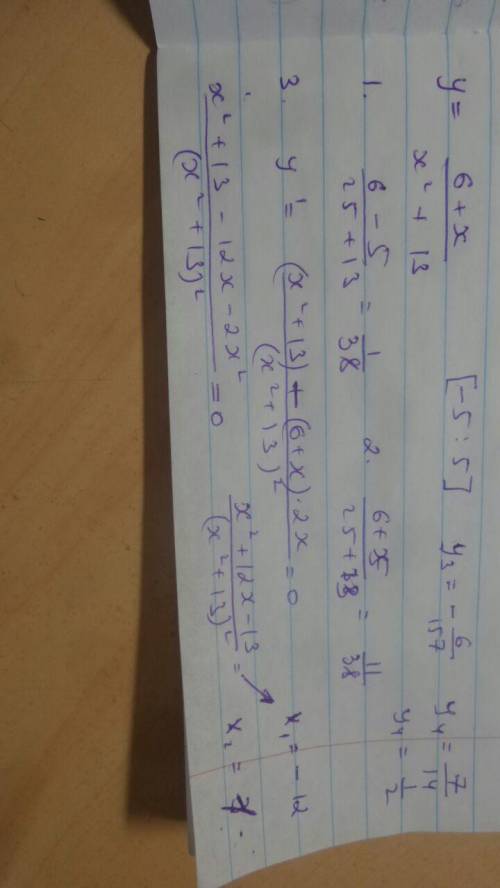 y = (6+x)/(x² + 13) [-5 : 5] y₃ = -6/157 y₄ = 7/14
y₄ = 1/2
1. (6 - 5)/(25 + 13) = 1/38 2. (6+5)/(25+13) = 11/38
3. y' = ((x² + 13) - (6+x)·2x)/(x² + 13)² = 0 x₁ = -12
(x² + 13 - 12x - 2x²)/(x² + 13)² = 0 (x² + 12x - 13)/(x² + 13)² = x₂ = 1.